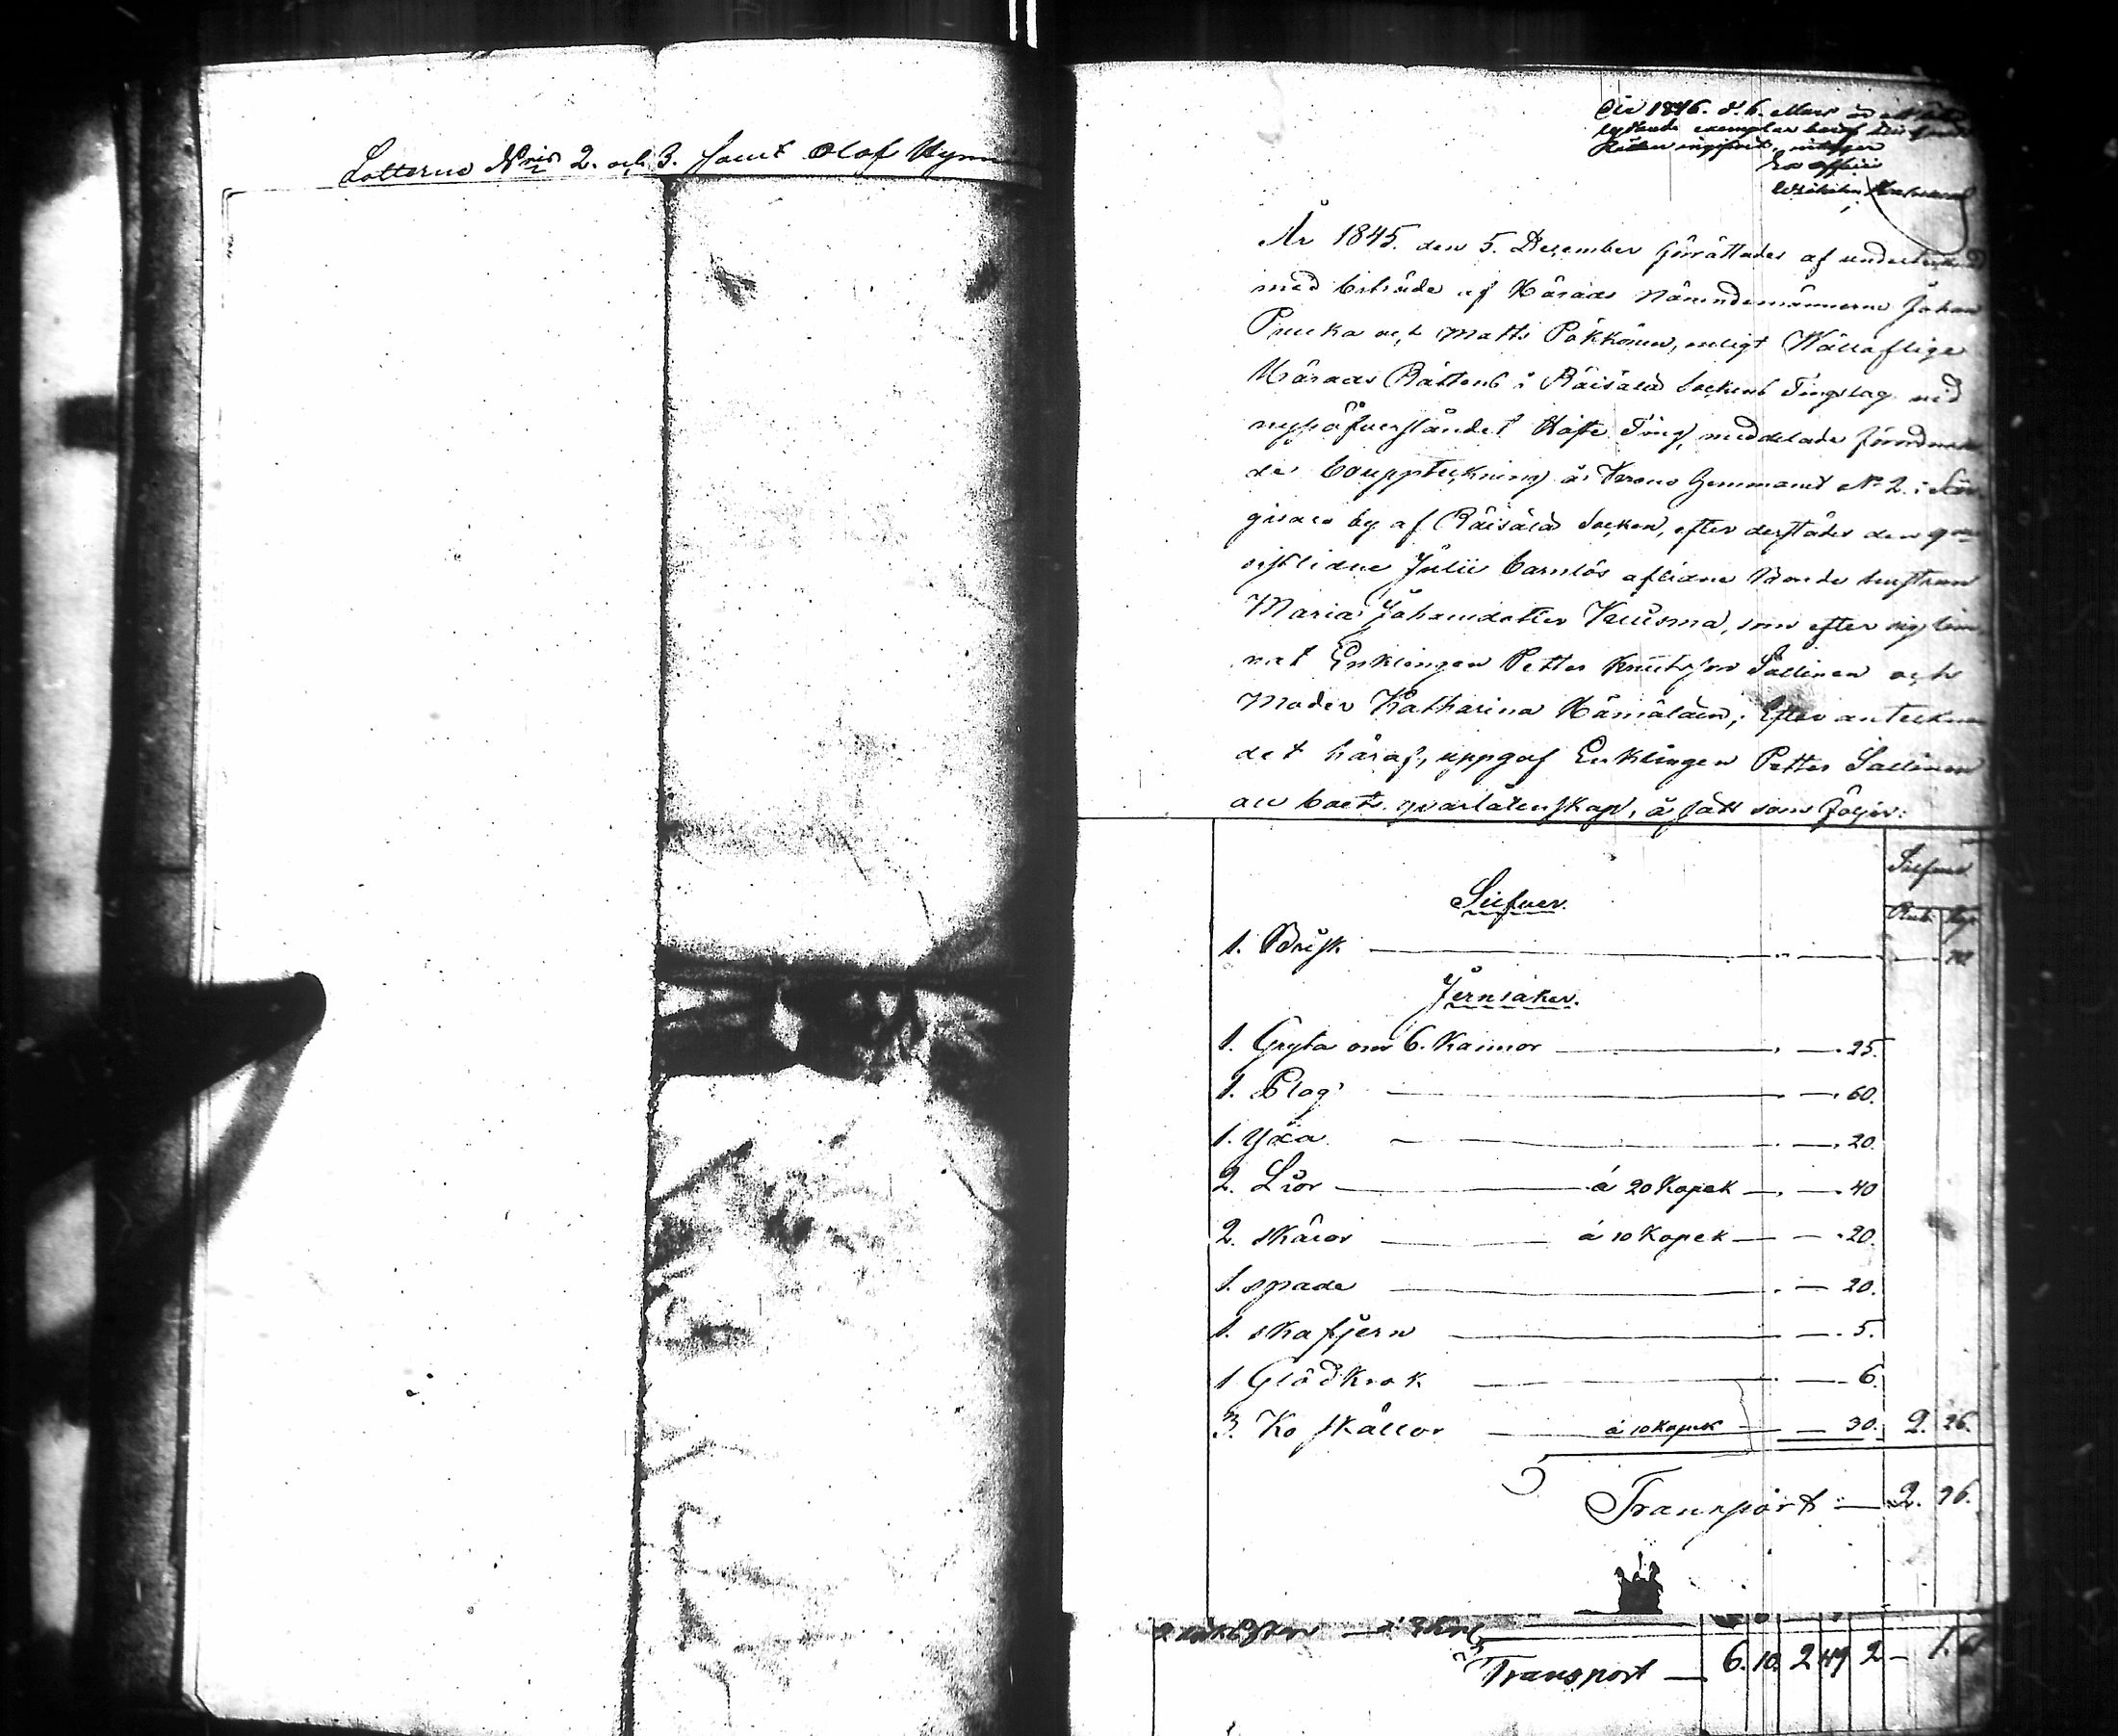 Lotterne N:ris 2. och 3. samt Olof
År 1846. d. 6. Mars är ett
lydande exemplar
Rätten ingifvit,
Ex officio
År 1845. den 5. December förrättades af
med biträde af Härads Nämndemännerne Johan
Pucka och Matts Pökkönen, enligt Wällofliga
Härads Rättens i Räisälä Sockens Tingslag vid
nyssöfverståndet Höste Ting, meddelade förordnan
de, bouppteckning å Krono Hemmanet N:o 2. i
by af Räisälä Socken, efter derstädes den
sistlidne Julii barnlös aflidne Bonde hustrun
Maria Johansdotter Kuisma, som efter sig läm
nat Enklingen Petter Knutsson Sallinen och
Moder Katharina Hämäläin; Efter anteckn
det häraf, uppgaf Enklingen Petter Sallinen
all boets qvarlåtenskap, å sätt som följer:
Silfver
Rub. Kop.
Silfver.
1. Brisk — 70.
Jernsaker.
1. Gryta om 6. Kannor — 25.
1. Plog — 60.
1. Yxa — 20.
2. Liör — á 20 Kopek — 40
2. skäror — á 10 Kopek — 20.
1. spade — 20.
1. skafjern — 5.
1 Glödkrok — 6.
3. Ko skällor — á 10 Kopek — 30. 2. 26.
Transport — 2. 96.
Transport — 6. 10. 2 49 2 — 1.